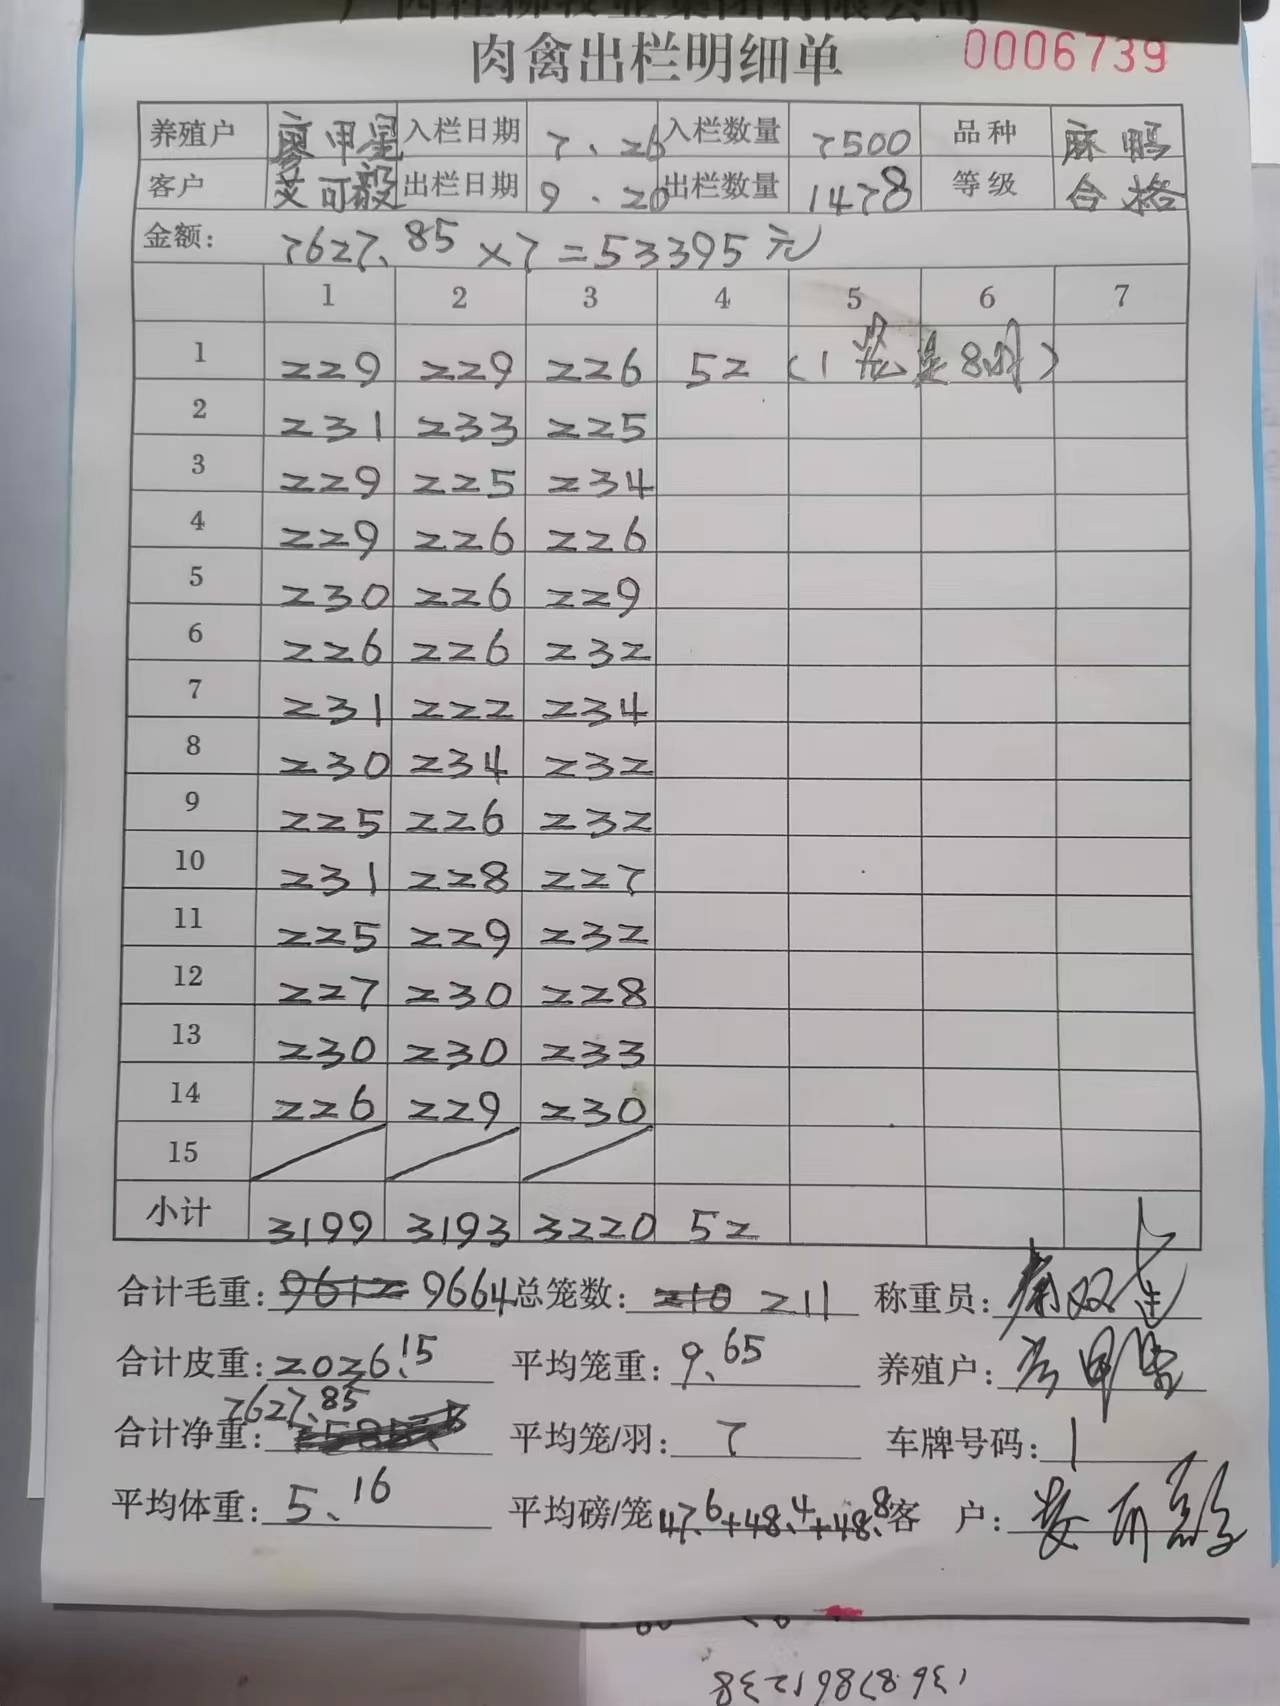 广西桂柳牧业集团有限公司
肉禽出栏明细单 0006739
养殖户 廖甲星 入栏日期 7.26 入栏数量 7500 品种 麻鸭
客户 艾可毅 出栏日期 9.20 出栏数量 1478 等级 合格
金额: 7627.85×7=53395元
1 2 3 4 5 6 7
1 229 229 226 52 (1笼是8羽)
2 231 233 225
3 229 225 234
4 229 226 226
5 230 226 229
6 226 226 232
7 231 222 234
8 230 234 232
9 225 226 232
10 231 228 227
11 225 229 232
12 227 230 228
13 230 230 233
14 226 229 230
15
小计 3199 3193 3220 52
合计毛重: 9612 9664 总笼数: 210 211 称重员:
合计皮重: 2036.15 平均笼重: 9.65 养殖户:
合计净重: 7627.85 平均笼/羽: 7 车牌号码: 1
平均体重: 5.16 平均磅/笼 47.6+48.4+48.8 客 户: